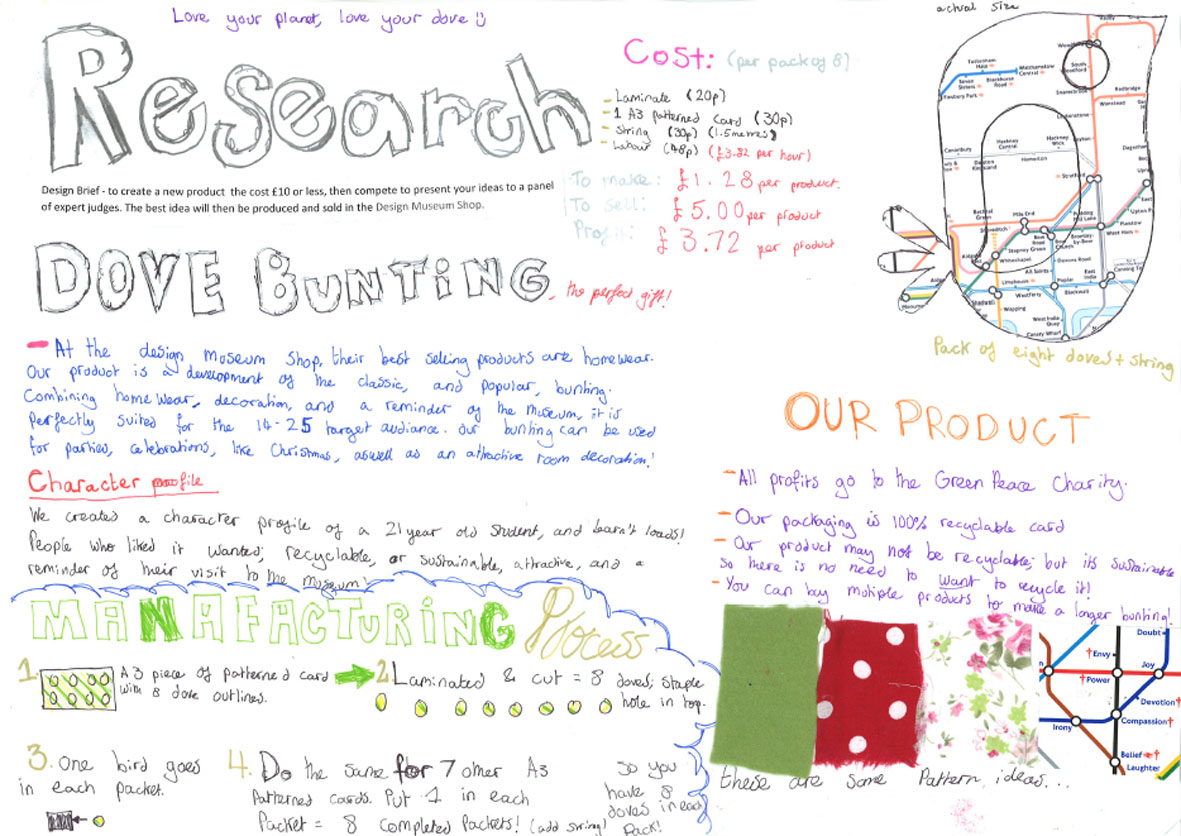 Love your planet, love your dove
Research
Design Brief - to create a new product the cost £10 or less, then compete to present your ideas to a panel
of expert judges. The best idea will then be produced and sold in the Design Museum Shop.
Cost: (per pack of 8)
- Laminate (20p)
- 1 A3 patterned card (30p)
- String (30p) (1.5metres)
- Labour (48p) (£3.82 per hour)
To make: £1.28 per product.
To sell: £5.00 per product
Profit: £3.72 per product
actual size
Tottenham
Hale
Seven
Sisters
Blackhorse
Road
Walthamstow
Central
Finsbury Park
South
Woodford
Snaresbrook
Redbridge
Wanstead
Leytonstone
Leyton
Hackney
Central
Hackney
Wick
Canonbury
Dalston
Kingsland
Homerton
Stratford
Bethnal
Green
Mile End
Pudding
Mill Lane
Shoreditch
Bow
Road
Bow
Church
Bromley-
by-Bow
Stepney Green
Whitechapel
West Ham
Plaistow
Upton
Devons Road
All Saints
Limehouse
Poplar
East
India
Canning To
Shadwell
Westferry
Blackwall
Wapping
West India
Quay
Canary Wharf
Monument
Pack of eight doves + string
DOVE BUNTING, the perfect gift!
- At the design museum shop, their best selling products are homewear.
Our product is a development of the classic, and popular, bunting.
Combining homewear, decoration, and a reminder of the museum, it is
perfectly suited for the 14-25 target audiance. Our bunting can be used
for parties, celebrations, like Christmas, aswell as an attractive room decoration!
Character profile
We created a character profile of a 21 year old student, and learn't loads!
People who liked it wanted; recyclable, or sustainable, attractive, and a
reminder of their visit to the museum!
OUR PRODUCT
- All profits go to the Green Peace Charity.
- Our packaging is 100% recyclable card
- Our product may not be recyclable; but its sustainable
so there is no need to want to recycle it!
- You can buy multiple products to make a longer bunting!
MANAFACTURING Process
1. A3 piece of patterned card
with 8 dove outlines.
2. Laminated & cut = 8 doves; staple
hole in top.
3. One bird goes
in each packet.
4. Do the same for 7 other A3
patterned cards. Put 1 in each
packet = 8 completed packets! (add string)
So you
have 8
doves in each
pack!
Doubt
Envy
Joy
Power
Devotion
Irony
Compassion
Belief
Laughter
these are some pattern ideas...